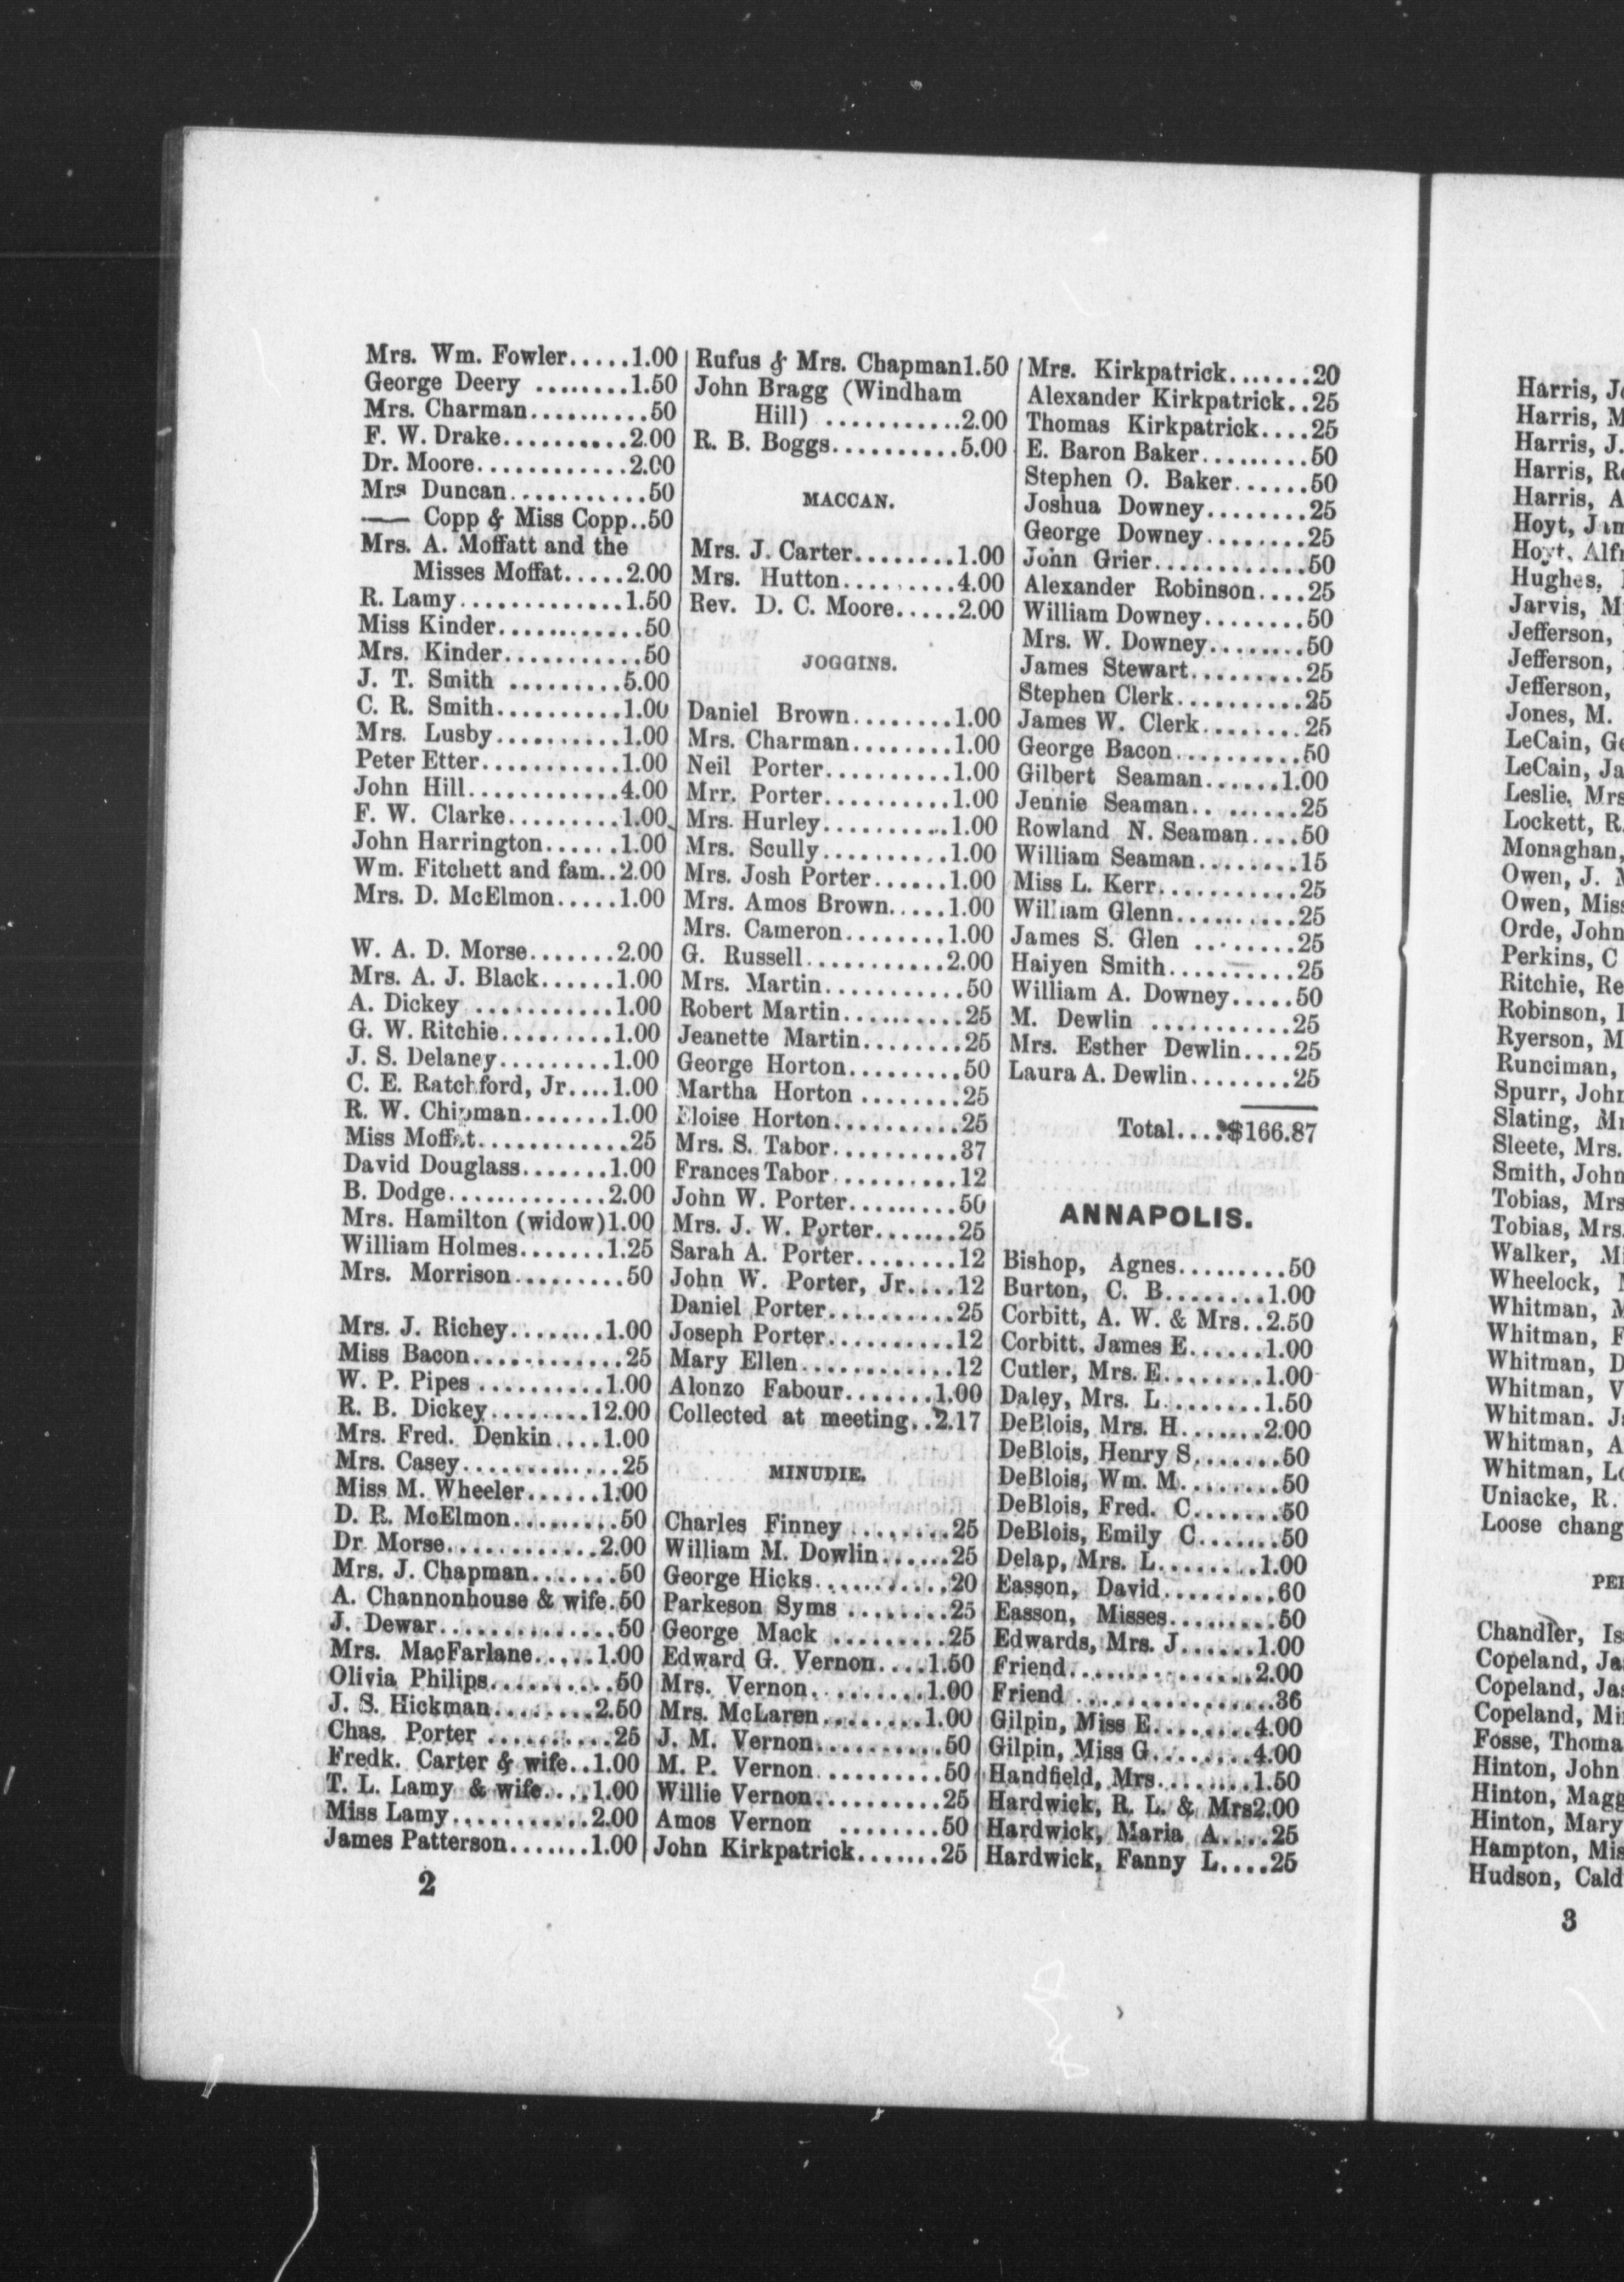 Mrs. Wm. Fowler.....1.00
George Deery ........1.50
Mrs. Charman..........50
F. W. Drake...........2.00
Dr. Moore............2.00
Mrs Duncan...........50
—— Copp & Miss Copp..50
Mrs. A. Moffatt and the
Misses Moffat.....2.00
R. Lamy.............1.50
Miss Kinder............50
Mrs. Kinder...........50
J. T. Smith .........5.00
C. R. Smith..........1.00
Mrs. Lusby..........1.00
Peter Etter...........1.00
John Hill............4.00
F. W. Clarke.........1.00
John Harrington......1.00
Wm. Fitchett and fam..2.00
Mrs. D. McElmon.....1.00
W. A. D. Morse.......2.00
Mrs. A. J. Black......1.00
A. Dickey ...........1.00
G. W. Ritchie.........1.00
J. S. Delaney.........1.00
C. E. Ratchford, Jr....1.00
R. W. Chipman.......1.00
Miss Moffat............25
David Douglass.......1.00
B. Dodge.............2.00
Mrs. Hamilton (widow)1.00
William Holmes.......1.25
Mrs. Morrison.........50
Mrs. J. Richey........1.00
Miss Bacon............25
W. P. Pipes ..........1.00
R. B. Dickey........12.00
Mrs. Fred. Denkin....1.00
Mrs. Casey.............25
Miss M. Wheeler......1.00
D. R. McElmon.........50
Dr Morse............2.00
Mrs. J. Chapman.......50
A. Channonhouse & wife.50
J. Dewar..............50
Mrs. MacFarlane.....1.00
Olivia Philips..........50
J. S. Hickman........2.50
Chas. Porter ..........25
Fredk. Carter & wife..1.00
T. L. Lamy & wife....1.00
Miss Lamy...........2.00
James Patterson.......1.00
2
Rufus & Mrs. Chapman1.50
John Bragg (Windham
Hill) ...........2.00
R. B. Boggs..........5.00
MACCAN.
Mrs. J. Carter........1.00
Mrs. Hutton.........4.00
Rev. D. C. Moore.....2.00
JOGGINS.
Daniel Brown........1.00
Mrs. Charman........1.00
Neil Porter..........1.00
Mrr. Porter..........1.00
Mrs. Hurley..........1.00
Mrs. Scully..........1.00
Mrs. Josh Porter......1.00
Mrs. Amos Brown.....1.00
Mrs. Cameron........1.00
G. Russell...........2.00
Mrs. Martin...........50
Robert Martin..........25
Jeanette Martin........25
George Horton.........50
Martha Horton ........25
Eloise Horton..........25
Mrs. S. Tabor..........37
Frances Tabor..........12
John W. Porter.........50
Mrs. J. W. Porter.......25
Sarah A. Porter........12
John W. Porter, Jr....12
Daniel Porter..........25
Joseph Porter..........12
Mary Ellen............12
Alonzo Fabour.......1.00
Collected at meeting..2.17
MINUDIE.
Charles Finney ........25
William M. Dowlin......25
George Hicks...........20
Parkeson Syms ........25
George Mack .........25
Edward G. Vernon....1.50
Mrs. Vernon.........1.00
Mrs. McLaren........1.00
J. M. Vernon..........50
M. P. Vernon..........50
Willie Vernon..........25
Amos Vernon ........50
John Kirkpatrick.......25
Mrs. Kirkpatrick.......20
Alexander Kirkpatrick..25
Thomas Kirkpatrick....25
E. Baron Baker.........50
Stephen O. Baker......50
Joshua Downey........25
George Downey........25
John Grier............50
Alexander Robinson....25
William Downey........50
Mrs. W. Downey........50
James Stewart..........25
Stephen Clerk..........25
James W. Clerk........25
George Bacon..........50
Gilbert Seaman......1.00
Jennie Seaman.........25
Rowland N. Seaman....50
William Seaman........15
Miss L. Kerr...........25
William Glenn..........25
James S. Glen ........25
Haiyen Smith..........25
William A. Downey.....50
M. Dewlin ...........25
Mrs. Esther Dewlin....25
Laura A. Dewlin........25
Total....$166.87
ANNAPOLIS.
Bishop, Agnes.........50
Burton, C. B........1.00
Corbitt, A. W. & Mrs..2.50
Corbitt, James E......1.00
Cutler, Mrs. E........1.00
Daley, Mrs. L........1.50
DeBlois, Mrs. H.......2.00
DeBlois, Henry S.......50
DeBlois, Wm. M........50
DeBlois, Fred. C.......50
DeBlois, Emily C.......50
Delap, Mrs. L........1.00
Easson, David.........60
Easson, Misses.........50
Edwards, Mrs. J......1.00
Friend...............2.00
Friend ................36
Gilpin, Miss E........4.00
Gilpin, Miss G........4.00
Handfield, Mrs........1.50
Hardwick, R. L. & Mrs2.00
Hardwick, Maria A....25
Hardwick, Fanny L....25
Harris,
Harris,
Harris, J.
Harris,
Harris,
Hoyt,
Hoyt,
Hughes,
Jarvis,
Jefferson,
Jefferson,
Jefferson,
Jones, M.
LeCain,
LeCain,
Leslie, Mrs
Lockett, R.
Monaghan,
Owen, J.
Owen, Miss
Orde, John
Perkins, C
Ritchie,
Robinson,
Ryerson,
Runciman,
Spurr, John
Slating,
Sleete, Mrs.
Smith, John
Tobias, Mrs
Tobias, Mrs.
Walker,
Wheelock,
Whitman,
Whitman,
Whitman,
Whitman,
Whitman.
Whitman,
Whitman,
Uniacke, R.
Loose chang
Chandler,
Copeland,
Copeland,
Copeland,
Fosse, Thoma
Hinton, John
Hinton, Magg
Hinton, Mary
Hampton,
Hudson,
3